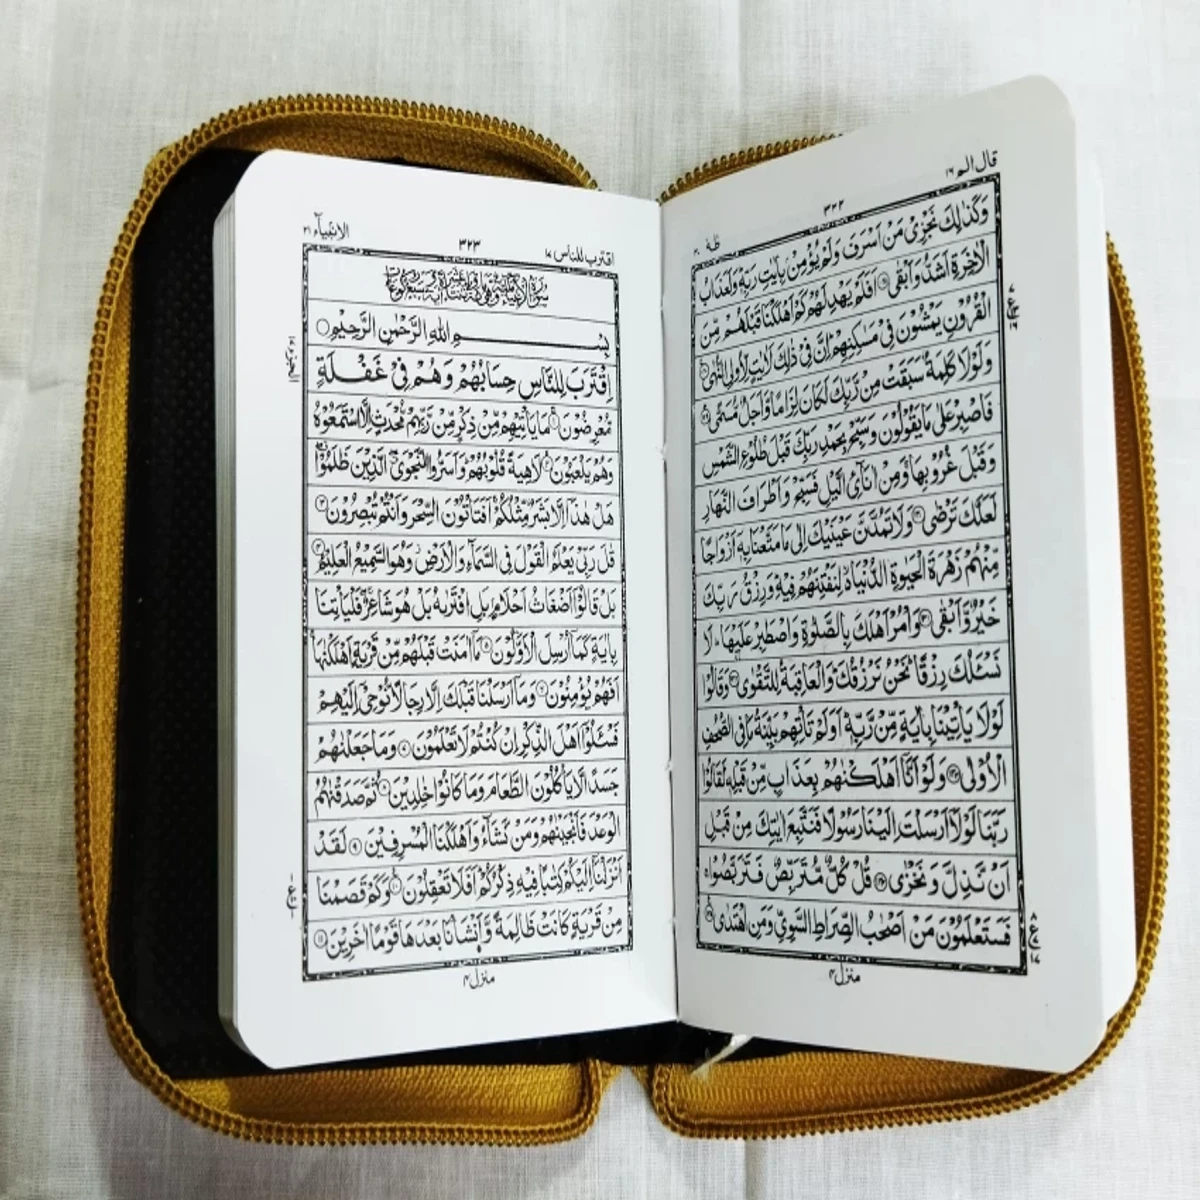 قال الم ١٦
٣٢٢
طٰهٰ ٢٠
وَكَذٰلِكَ نَجْزِيْ مَنْ اَسْرَفَ وَلَمْ يُؤْمِنْۢ بِاٰيٰتِ رَبِّهٖ وَلَعَذَابُ
الْاٰخِرَةِ اَشَدُّ وَاَبْقٰى اَفَلَمْ يَهْدِ لَهُمْ كَمْ اَهْلَكْنَا قَبْلَهُمْ مِّنَ
الْقُرُوْنِ يَمْشُوْنَ فِيْ مَسٰكِنِهِمْ اِنَّ فِيْ ذٰلِكَ لَاٰيٰتٍ لِّاُولِي النُّهٰى
وَلَوْلَا كَلِمَةٌ سَبَقَتْ مِنْ رَّبِّكَ لَكَانَ لِزَامًا وَّاَجَلٌ مُّسَمًّى
فَاصْبِرْ عَلٰى مَا يَقُوْلُوْنَ وَسَبِّحْ بِحَمْدِ رَبِّكَ قَبْلَ طُلُوْعِ الشَّمْسِ
وَقَبْلَ غُرُوْبِهَا وَمِنْ اٰنَآئِ الَّيْلِ فَسَبِّحْ وَاَطْرَافَ النَّهَارِ
لَعَلَّكَ تَرْضٰى وَلَا تَمُدَّنَّ عَيْنَيْكَ اِلٰى مَا مَتَّعْنَا بِهٖٓ اَزْوَاجًا
مِّنْهُمْ زَهْرَةَ الْحَيٰوةِ الدُّنْيَا لِنَفْتِنَهُمْ فِيْهِ وَرِزْقُ رَبِّكَ
خَيْرٌ وَّاَبْقٰى وَاْمُرْ اَهْلَكَ بِالصَّلٰوةِ وَاصْطَبِرْ عَلَيْهَا لَا
نَسْـَٔلُكَ رِزْقًا نَحْنُ نَرْزُقُكَ وَالْعَاقِبَةُ لِلتَّقْوٰى وَقَالُوْا
لَوْلَا يَاْتِيْنَا بِاٰيَةٍ مِّنْ رَّبِّهٖ اَوَلَمْ تَاْتِهِمْ بَيِّنَةُ مَا فِي الصُّحُفِ
الْاُوْلٰى وَلَوْ اَنَّآ اَهْلَكْنٰهُمْ بِعَذَابٍ مِّنْ قَبْلِهٖ لَقَالُوْا
رَبَّنَا لَوْلَآ اَرْسَلْتَ اِلَيْنَا رَسُوْلًا فَنَتَّبِعَ اٰيٰتِكَ مِنْ قَبْلِ
اَنْ نَّذِلَّ وَنَخْزٰى قُلْ كُلٌّ مُّتَرَبِّصٌ فَتَرَبَّصُوْا
فَسَتَعْلَمُوْنَ مَنْ اَصْحٰبُ الصِّرَاطِ السَّوِيِّ وَمَنِ اهْتَدٰى
منزل ٤
اقترب للناس ١٧
٣٢٣
الانبياء ٢١
بِسْمِ اللّٰهِ الرَّحْمٰنِ الرَّحِيْمِ
اِقْتَرَبَ لِلنَّاسِ حِسَابُهُمْ وَهُمْ فِيْ غَفْلَةٍ
مُّعْرِضُوْنَ مَا يَاْتِيْهِمْ مِّنْ ذِكْرٍ مِّنْ رَّبِّهِمْ مُّحْدَثٍ اِلَّا اسْتَمَعُوْهُ
وَهُمْ يَلْعَبُوْنَ لَاهِيَةً قُلُوْبُهُمْ وَاَسَرُّوا النَّجْوَى الَّذِيْنَ ظَلَمُوْا
هَلْ هٰذَآ اِلَّا بَشَرٌ مِّثْلُكُمْ اَفَتَاْتُوْنَ السِّحْرَ وَاَنْتُمْ تُبْصِرُوْنَ
قٰلَ رَبِّيْ يَعْلَمُ الْقَوْلَ فِي السَّمَآءِ وَالْاَرْضِ وَهُوَ السَّمِيْعُ الْعَلِيْمُ
بَلْ قَالُوْٓا اَضْغَاثُ اَحْلَامٍۢ بَلِ افْتَرٰىهُ بَلْ هُوَ شَاعِرٌ فَلْيَاْتِنَا
بِاٰيَةٍ كَمَآ اُرْسِلَ الْاَوَّلُوْنَ مَآ اٰمَنَتْ قَبْلَهُمْ مِّنْ قَرْيَةٍ اَهْلَكْنٰهَا
اَفَهُمْ يُؤْمِنُوْنَ وَمَآ اَرْسَلْنَا قَبْلَكَ اِلَّا رِجَالًا نُّوْحِيْٓ اِلَيْهِمْ
فَسْـَٔلُوْٓا اَهْلَ الذِّكْرِ اِنْ كُنْتُمْ لَا تَعْلَمُوْنَ وَمَا جَعَلْنٰهُمْ
جَسَدًا لَّا يَاْكُلُوْنَ الطَّعَامَ وَمَا كَانُوْا خٰلِدِيْنَ ثُمَّ صَدَقْنٰهُمُ
الْوَعْدَ فَاَنْجَيْنٰهُمْ وَمَنْ نَّشَآءُ وَاَهْلَكْنَا الْمُسْرِفِيْنَ لَقَدْ
اَنْزَلْنَآ اِلَيْكُمْ كِتٰبًا فِيْهِ ذِكْرُكُمْ اَفَلَا تَعْقِلُوْنَ وَكَمْ قَصَمْنَا
مِنْ قَرْيَةٍ كَانَتْ ظَالِمَةً وَّاَنْشَاْنَا بَعْدَهَا قَوْمًا اٰخَرِيْنَ
منزل ٤